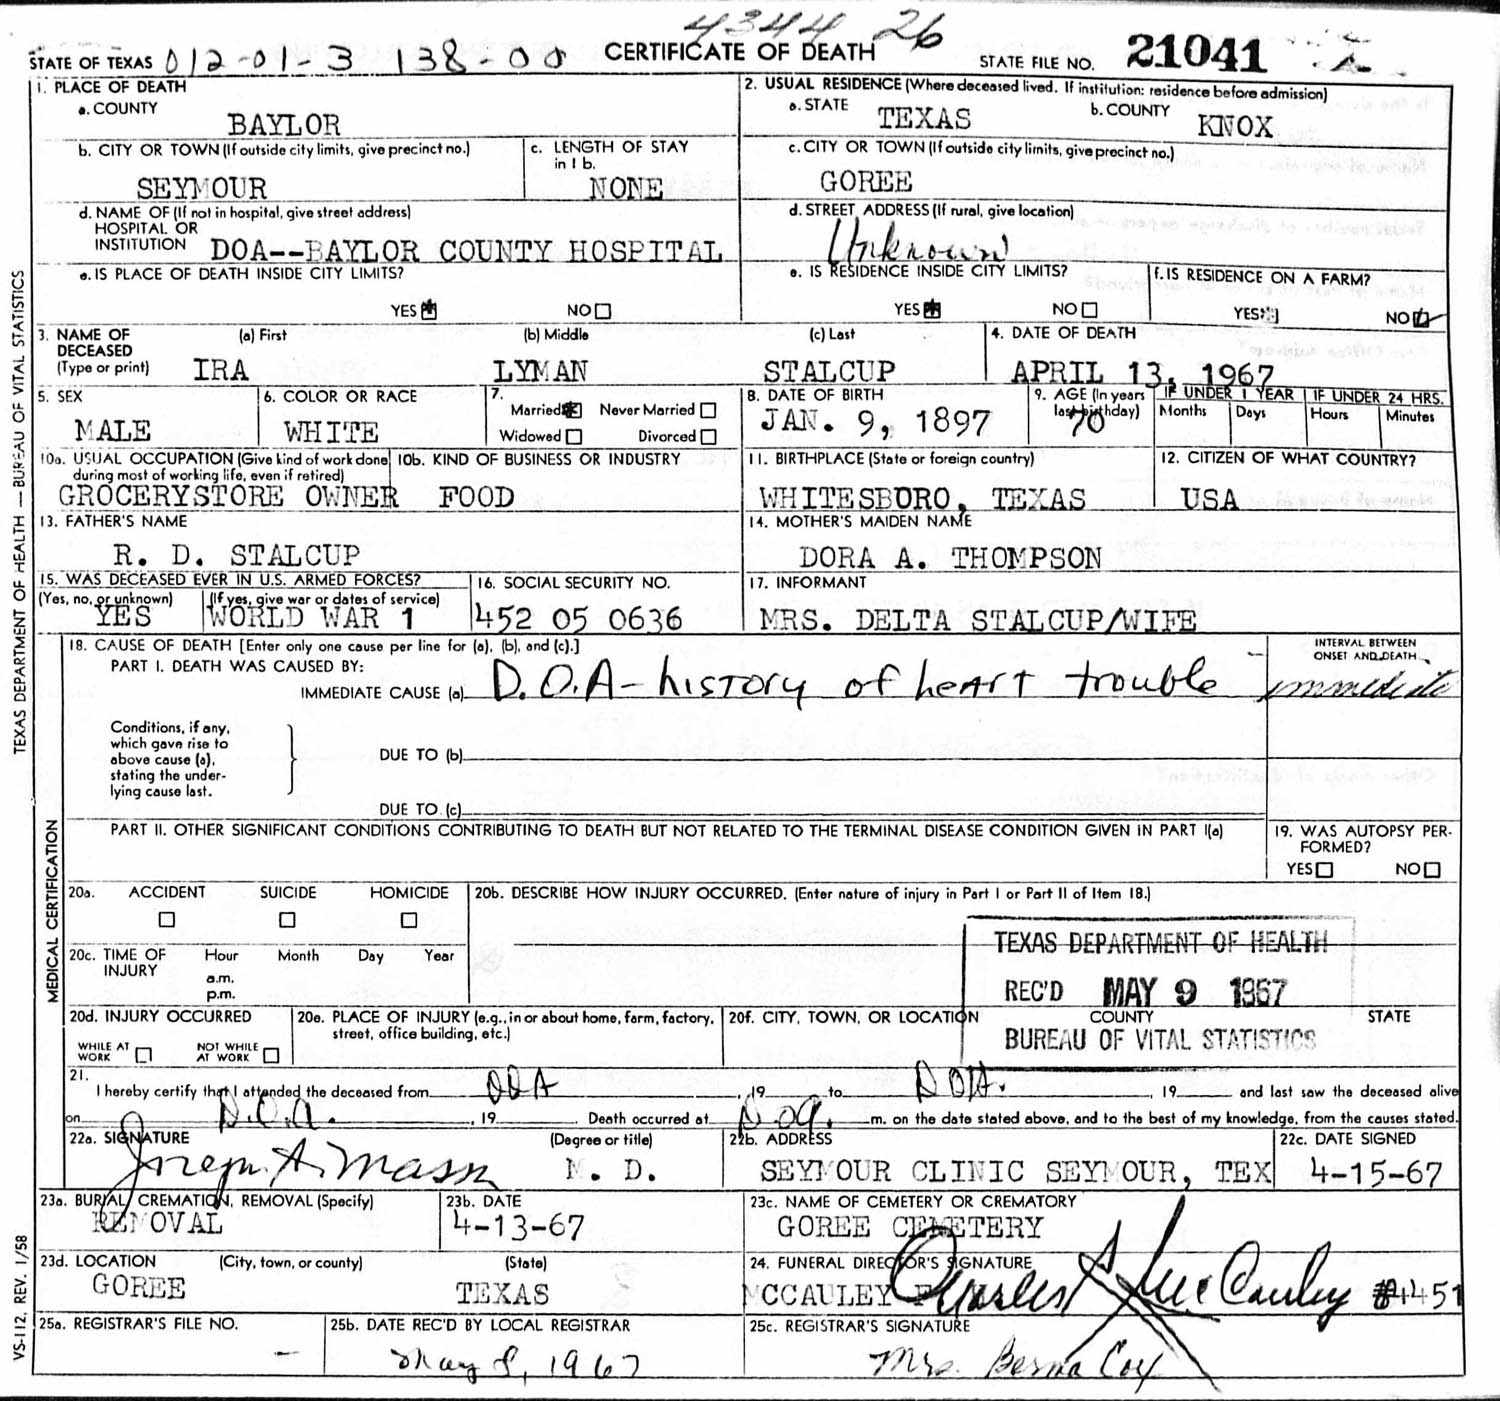 4344 26
STATE OF TEXAS 012-01-3 138-00 CERTIFICATE OF DEATH STATE FILE NO. 21041
1. PLACE OF DEATH
a. COUNTY
BAYLOR
2. USUAL RESIDENCE (Where deceased lived. If institution: residence before admission)
a. STATE TEXAS b. COUNTY KNOX
b. CITY OR TOWN (If outside city limits, give precinct no.)
SEYMOUR
c. LENGTH OF STAY in 1 b.
NONE
c. CITY OR TOWN (If outside city limits, give precinct no.)
GOREE
d. NAME OF (If not in hospital, give street address)
HOSPITAL OR
INSTITUTION DOA--BAYLOR COUNTY HOSPITAL
d. STREET ADDRESS (If rural, give location)
Unknown
e. IS PLACE OF DEATH INSIDE CITY LIMITS?
YES NO
e. IS RESIDENCE INSIDE CITY LIMITS?
YES NO
f. IS RESIDENCE ON A FARM?
YES NO
3. NAME OF DECEASED (Type or print)
(a) First (b) Middle (c) Last
IRA LYMAN STALCUP
4. DATE OF DEATH
APRIL 13, 1967
5. SEX
MALE
6. COLOR OR RACE
WHITE
7.
Married Never Married
Widowed Divorced
8. DATE OF BIRTH
JAN. 9, 1897
9. AGE (In years last birthday)
70
IF UNDER 1 YEAR IF UNDER 24 HRS.
Months Days Hours Minutes
10a. USUAL OCCUPATION (Give kind of work done during most of working life, even if retired)
GROCERYSTORE OWNER
10b. KIND OF BUSINESS OR INDUSTRY
FOOD
11. BIRTHPLACE (State or foreign country)
WHITESBORO, TEXAS
12. CITIZEN OF WHAT COUNTRY?
USA
13. FATHER'S NAME
R. D. STALCUP
14. MOTHER'S MAIDEN NAME
DORA A. THOMPSON
15. WAS DECEASED EVER IN U.S. ARMED FORCES?
(Yes, no, or unknown) (If yes, give war or dates of service)
YES WORLD WAR 1
16. SOCIAL SECURITY NO.
452 05 0636
17. INFORMANT
MRS. DELTA STALCUP/WIFE
18. CAUSE OF DEATH [Enter only one cause per line for (a), (b), and (c).]
PART I. DEATH WAS CAUSED BY:
IMMEDIATE CAUSE (a) D.O.A - history of heart trouble
INTERVAL BETWEEN
ONSET AND DEATH
immediate
Conditions, if any,
which gave rise to
above cause (a),
stating the under-
lying cause last.
DUE TO (b)
DUE TO (c)
PART II. OTHER SIGNIFICANT CONDITIONS CONTRIBUTING TO DEATH BUT NOT RELATED TO THE TERMINAL DISEASE CONDITION GIVEN IN PART I(a)
19. WAS AUTOPSY PER-
FORMED?
YES NO
20a. ACCIDENT SUICIDE HOMICIDE
20b. DESCRIBE HOW INJURY OCCURRED. (Enter nature of injury in Part I or Part II of Item 18.)
20c. TIME OF INJURY Hour Month Day Year
a.m.
p.m.
TEXAS DEPARTMENT OF HEALTH
REC'D MAY 9 1967
BUREAU OF VITAL STATISTICS
20d. INJURY OCCURRED
WHILE AT WORK NOT WHILE AT WORK
20e. PLACE OF INJURY (e.g., in or about home, farm, factory,
street, office building, etc.)
20f. CITY, TOWN, OR LOCATION COUNTY STATE
21.
I hereby certify that I attended the deceased from DOA, 19 to D.O.A., 19 and last saw the deceased alive
on D.O.A., 19. Death occurred at DOA. m. on the date stated above, and to the best of my knowledge, from the causes stated.
22a. SIGNATURE (Degree or title)
M. D.
22b. ADDRESS
SEYMOUR CLINIC SEYMOUR, TEX
22c. DATE SIGNED
4-15-67
23a. BURIAL, CREMATION, REMOVAL (Specify)
REMOVAL
23b. DATE
4-13-67
23c. NAME OF CEMETERY OR CREMATORY
GOREE CEMETERY
23d. LOCATION (City, town, or county) (State)
GOREE TEXAS
24. FUNERAL DIRECTOR'S SIGNATURE
MCCAULEY Charles McCauley #4451
25a. REGISTRAR'S FILE NO.
-
25b. DATE REC'D BY LOCAL REGISTRAR
May 8, 1967
25c. REGISTRAR'S SIGNATURE
Mrs. Berma Cox
TEXAS DEPARTMENT OF HEALTH — BUREAU OF VITAL STATISTICS
MEDICAL CERTIFICATION
VS-112, REV. 1/58